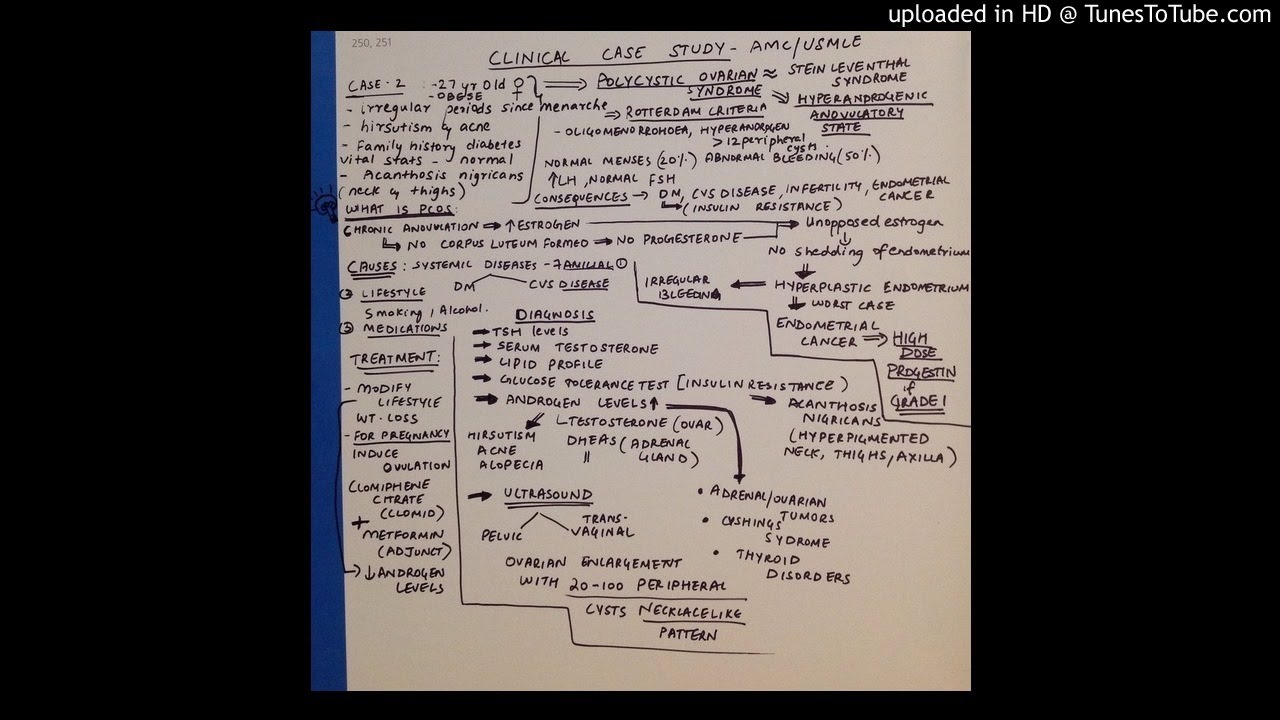 uploaded in HD @ TunesToTube.com
250, 251
CLINICAL CASE STUDY - AMC/USMLE
CASE - 2 : -27 yr Old ♀
- OBESE
- irregular periods since menarche
- hirsutism & acne
- Family history diabetes
vital stats - normal
- Acanthosis nigricans
(neck & thighs)
⇒ POLYCYSTIC OVARIAN SYNDROME ≈ STEIN LEVENTHAL SYNDROME
⇒ HYPERANDROGENIC
ANOVULATORY
STATE
⇒ ROTTERDAM CRITERIA
- OLIGOMENORRHOEA, HYPERANDROGEN
> 12 peripheral cysts.
NORMAL MENSES (20%) ABNORMAL BLEEDING (50%)
↑LH, NORMAL FSH
CONSEQUENCES → DM, CVS DISEASE, INFERTILITY, ENDOMETRIAL CANCER
↳ (INSULIN RESISTANCE)
WHAT IS PCOS:
CHRONIC ANOVULATION → ↑ESTROGEN → Unopposed estrogen
↳ NO CORPUS LUTEUM FORMED → NO PROGESTERONE
↓
No shedding of endometrium
⇓
HYPERPLASTIC ENDOMETRIUM
← IRREGULAR
BLEEDING
⇓ WORST CASE
ENDOMETRIAL
CANCER ⇒ HIGH
DOSE
PROGESTIN
if
GRADE 1
CAUSES: SYSTEMIC DISEASES - FAMILIAL ①
DM CVS DISEASE
② LIFESTYLE
Smoking, Alcohol.
③ MEDICATIONS
TREATMENT:
- MODIFY
LIFESTYLE
WT. LOSS
- FOR PREGNANCY
INDUCE
OVULATION
CLOMIPHENE
CITRATE
(CLOMID)
+
METFORMIN
(ADJUNCT)
→ ↓ ANDROGEN
LEVELS
DIAGNOSIS
→ TSH levels
→ SERUM TESTOSTERONE
→ LIPID PROFILE
→ GLUCOSE TOLERANCE TEST [INSULIN RESISTANCE)
→ ACANTHOSIS
NIGRICANS
(HYPERPIGMENTED
NECK, THIGHS, AXILLA)
→ ANDROGEN LEVELS ↑
HIRSUTISM
ACNE
ALOPECIA
TESTOSTERONE (OVAR)
DHEAS (ADRENAL
GLAND)
• ADRENAL/OVARIAN
TUMORS
• CUSHINGS
SYDROME
• THYROID
DISORDERS
→ ULTRASOUND
PELVIC TRANS-
VAGINAL
OVARIAN ENLARGEMENT
WITH 20-100 PERIPHERAL
CYSTS NECKLACELIKE
PATTERN